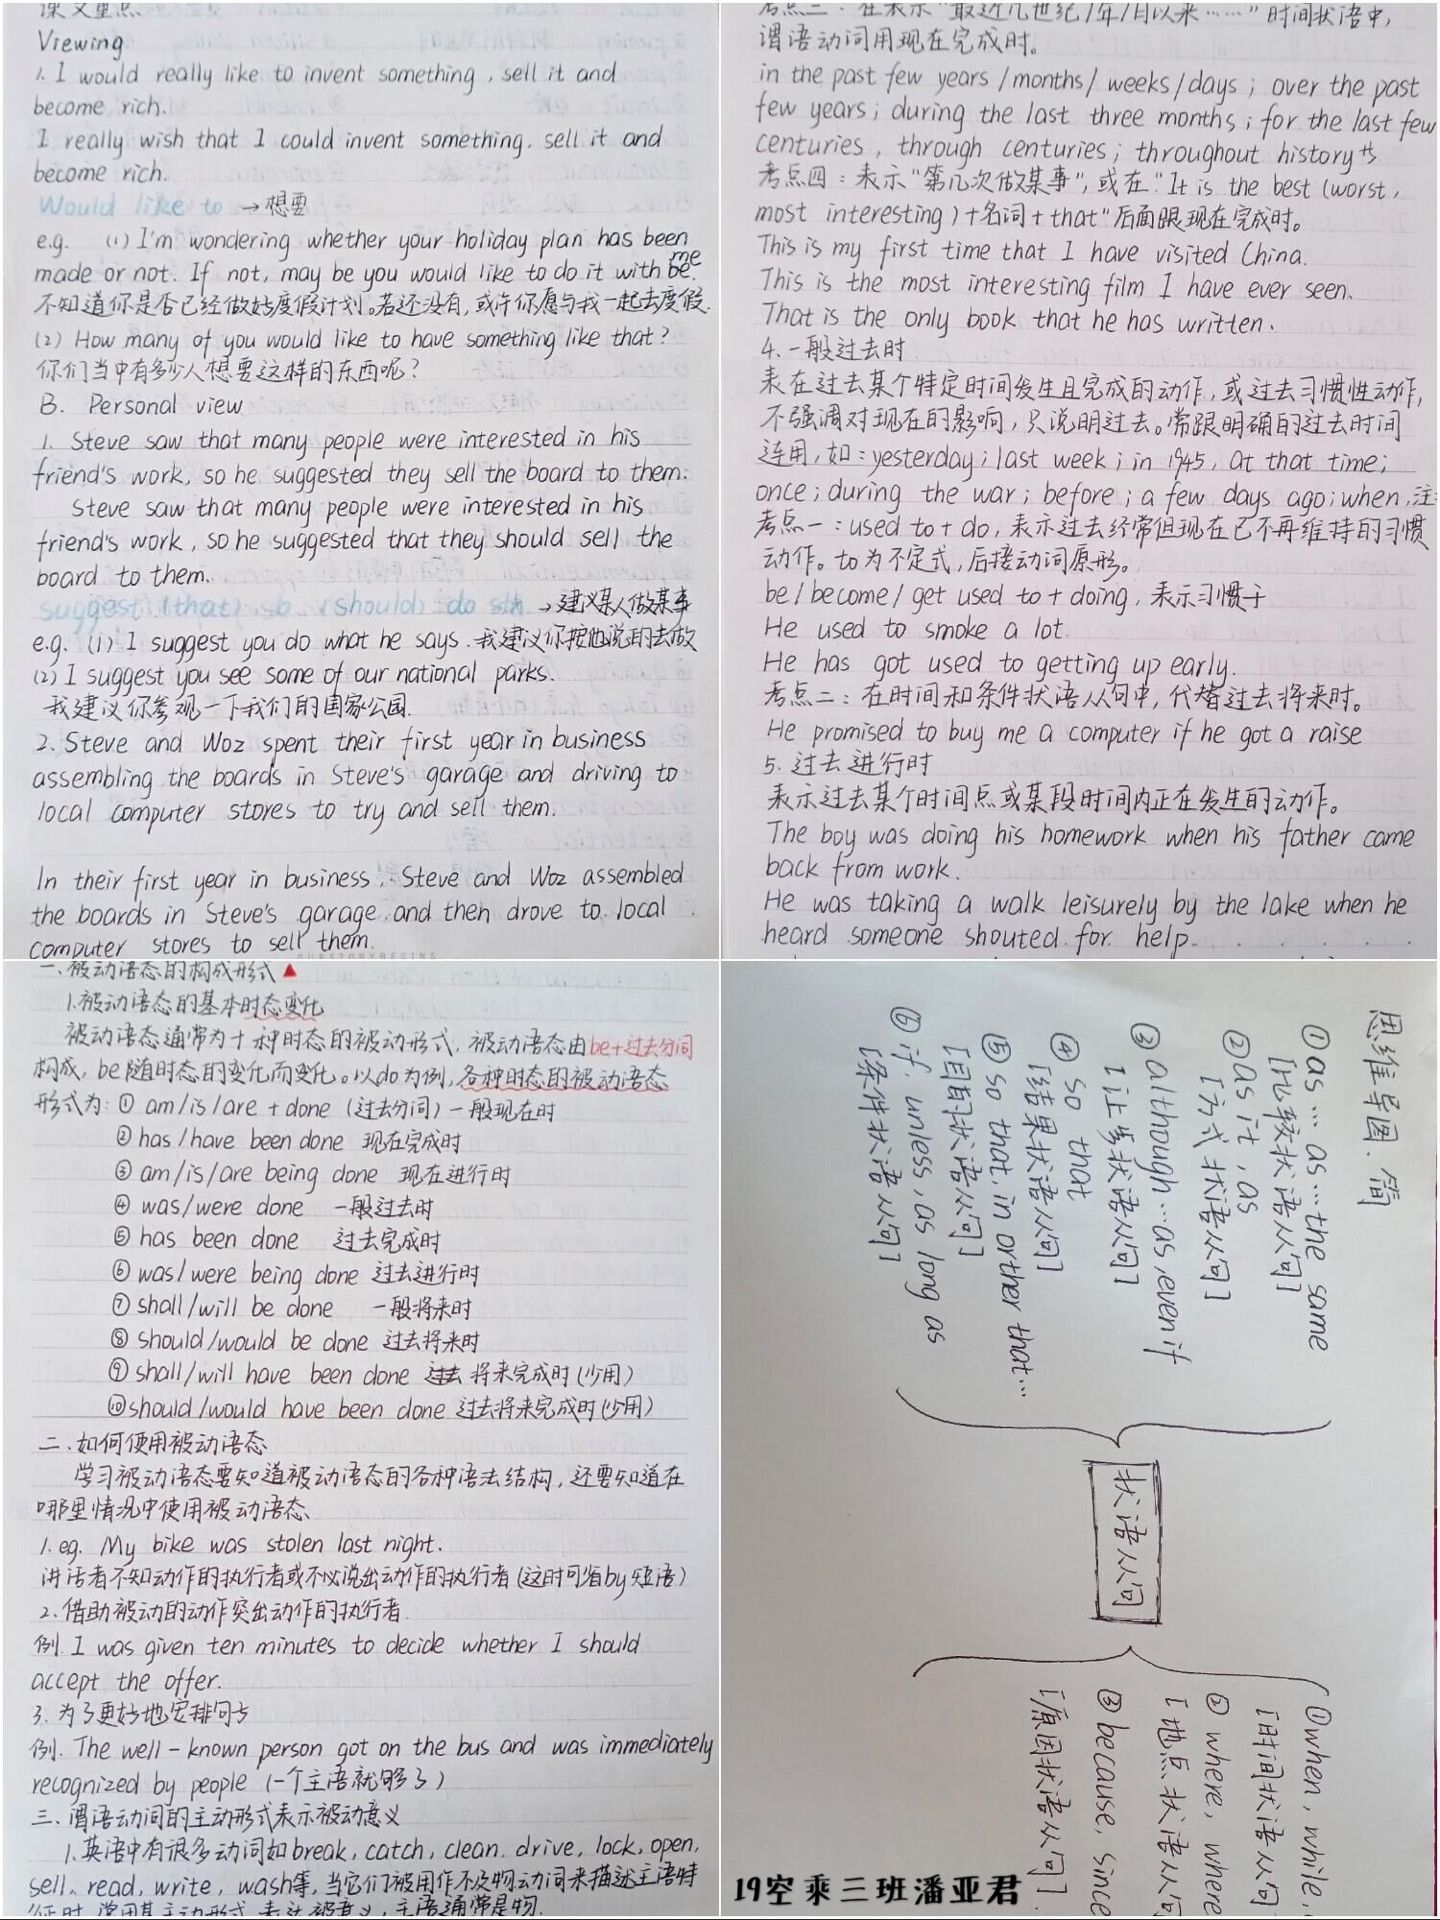 课文重点
Viewing
1. I would really like to invent something, sell it and
become rich.
I really wish that I could invent something. sell it and
become rich.
Would like to → 想要
e.g. (1) I'm wondering whether your holiday plan has been
made or not. If not, may be you would like to do it with be. me
不知道你是否已经做好度假计划。若还没有,或许你愿与我一起去度假.
(2) How many of you would like to have something like that?
你们当中有多少人想要这样的东西呢?
B. Personal view
1. Steve saw that many people were interested in his
friend's work, so he suggested they sell the board to them.
Steve saw that many people were interested in his
friend's work, so he suggested that they should sell the
board to them.
suggest (that) sb (should) do sth → 建议某人做某事
e.g. (1) I suggest you do what he says. 我建议你按他说的去做
(2) I suggest you see some of our national parks.
我建议你参观一下我们的国家公园.
2. Steve and Woz spent their first year in business
assembling the boards in Steve's garage and driving to
local computer stores to try and sell them.
In their first year in business, Steve and Woz assembled
the boards in Steve's garage and then drove to local
computer stores to sell them.
考点三:在表示"最近几世纪/年/月以来……"时间状语中,
谓语动词用现在完成时。
in the past few years/months/weeks/days; over the past
few years; during the last three months; for the last few
centuries, through centuries; throughout history 等
考点四:表示"第几次做某事",或在"It is the best (worst,
most interesting)+名词+that"后面跟现在完成时。
This is my first time that I have visited China.
This is the most interesting film I have ever seen.
That is the only book that he has written.
4. 一般过去时
表在过去某个特定时间发生且完成的动作,或过去习惯性动作,
不强调对现在的影响,只说明过去。常跟明确的过去时间
连用,如:yesterday; last week; in 1945, at that time;
once; during the war; before; a few days ago; when, 注
考点一:used to + do, 表示过去经常但现在已不再维持的习惯
动作。to为不定式,后接动词原形。
be/become/get used to + doing, 表示习惯于
He used to smoke a lot.
He has got used to getting up early.
考点二:在时间和条件状语从句中,代替过去将来时。
He promised to buy me a computer if he got a raise
5. 过去进行时
表示过去某个时间点或某段时间内正在发生的动作。
The boy was doing his homework when his father came
back from work.
He was taking a walk leisurely by the lake when he
heard someone shouted for help.
一.被动语态的构成形式
1.被动语态的基本时态变化
被动语态通常为十种时态的被动形式,被动语态由be+过去分词
构成, be随时态的变化而变化。以do为例,各种时态的被动语态
形式为:① am/is/are + done (过去分词) 一般现在时
② has/have been done 现在完成时
③ am/is/are being done 现在进行时
④ was/were done 一般过去时
⑤ has been done 过去完成时
⑥ was/were being done 过去进行时
⑦ shall/will be done 一般将来时
⑧ should/would be done 过去将来时
⑨ shall/will have been done 过去 将来完成时(少用)
⑩ should/would have been done 过去将来完成时(少用)
二.如何使用被动语态
学习被动语态要知道被动语态的各种语法结构,还要知道在
哪里情况中使用被动语态、
1. eg. My bike was stolen last night.
讲话者不知动作的执行者或不必说出动作的执行者(这时可省by短语)
2.借助被动的动作突出动作的执行者.
例. I was given ten minutes to decide whether I should
accept the offer.
3.为了更好地安排句子
例. The well-known person got on the bus and was immediately
recognized by people (一个主语就够了)
三.谓语动词的主动形式表示被动意义
1.英语中有很多动词如break, catch, clean. drive, lock, open,
sell, read, write, wash等,当它们被用作不及物动词来描述主语特
征时,常用其主动形式,表达被意义,主语通常是物.
思维导图.简
①as…as…the same
[比较状语从句]
②as it, as
[方式状语从句]
③although…as, even if
[让步状语从句]
④ so that
[结果状语从句]
⑤so that, in orther that…
[目的状语从句]
⑥if. unless, as long as
[条件状语从句]
状语从句
①when, while,
[时间状语从句
② where, where
[地点状语从句
③because, since
[原因状语从句].
19空乘三班潘亚君